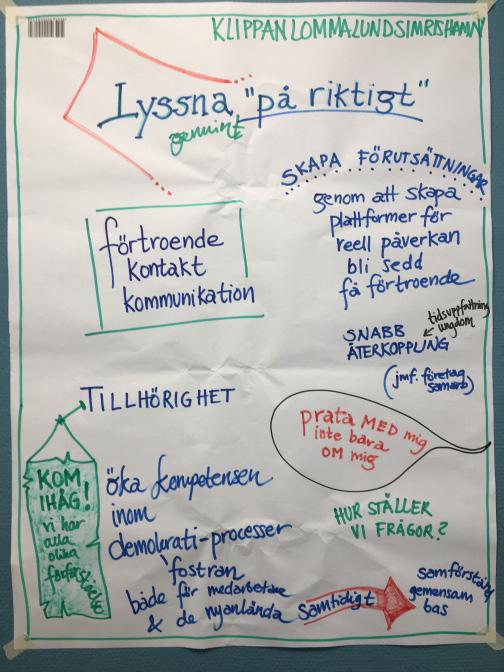 KLIPPAN LOMMA LUND SIMRISHAMN
Lyssna "på riktigt"
genuint
SKAPA FÖRUTSÄTTNINGAR
genom att skapa
plattformer för
reell påverkan
bli sedd
få förtroende
förtroende
kontakt
kommunikation
tidsuppfattning
ungdom
SNABB
ÅTERKOPPLING
(jmf. företag
samarb)
TILLHÖRIGHET
prata MED mig
inte bara
OM mig
KOM
IHÅG!
vi har
alla
olika
förförståelse
öka kompetensen
inom
demokrati-processer
fostran
både för medarbetare
& de nyanlända
HUR STÄLLER
VI FRÅGOR?
samtidigt
samförstånd
gemensam
bas